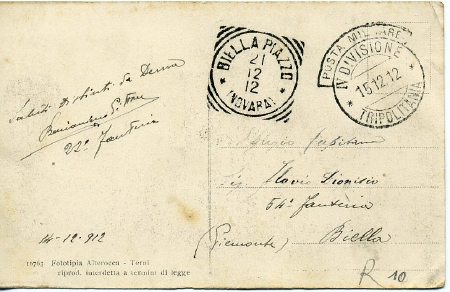 BIELLA PIAZZO
21
12
12
(NOVARA)
POSTA MILITARE
IV DIVISIONE
15.12.12
TRIPOLITANIA
Saluti distinti da Derna
22° Fanteria
14-12-912
Sig. Flavio Dionisio
54° Fanteria
(Piemonte) Biella
11763 Fototipia Alterocca - Terni
riprod. interdetta a termini di legge
R 10